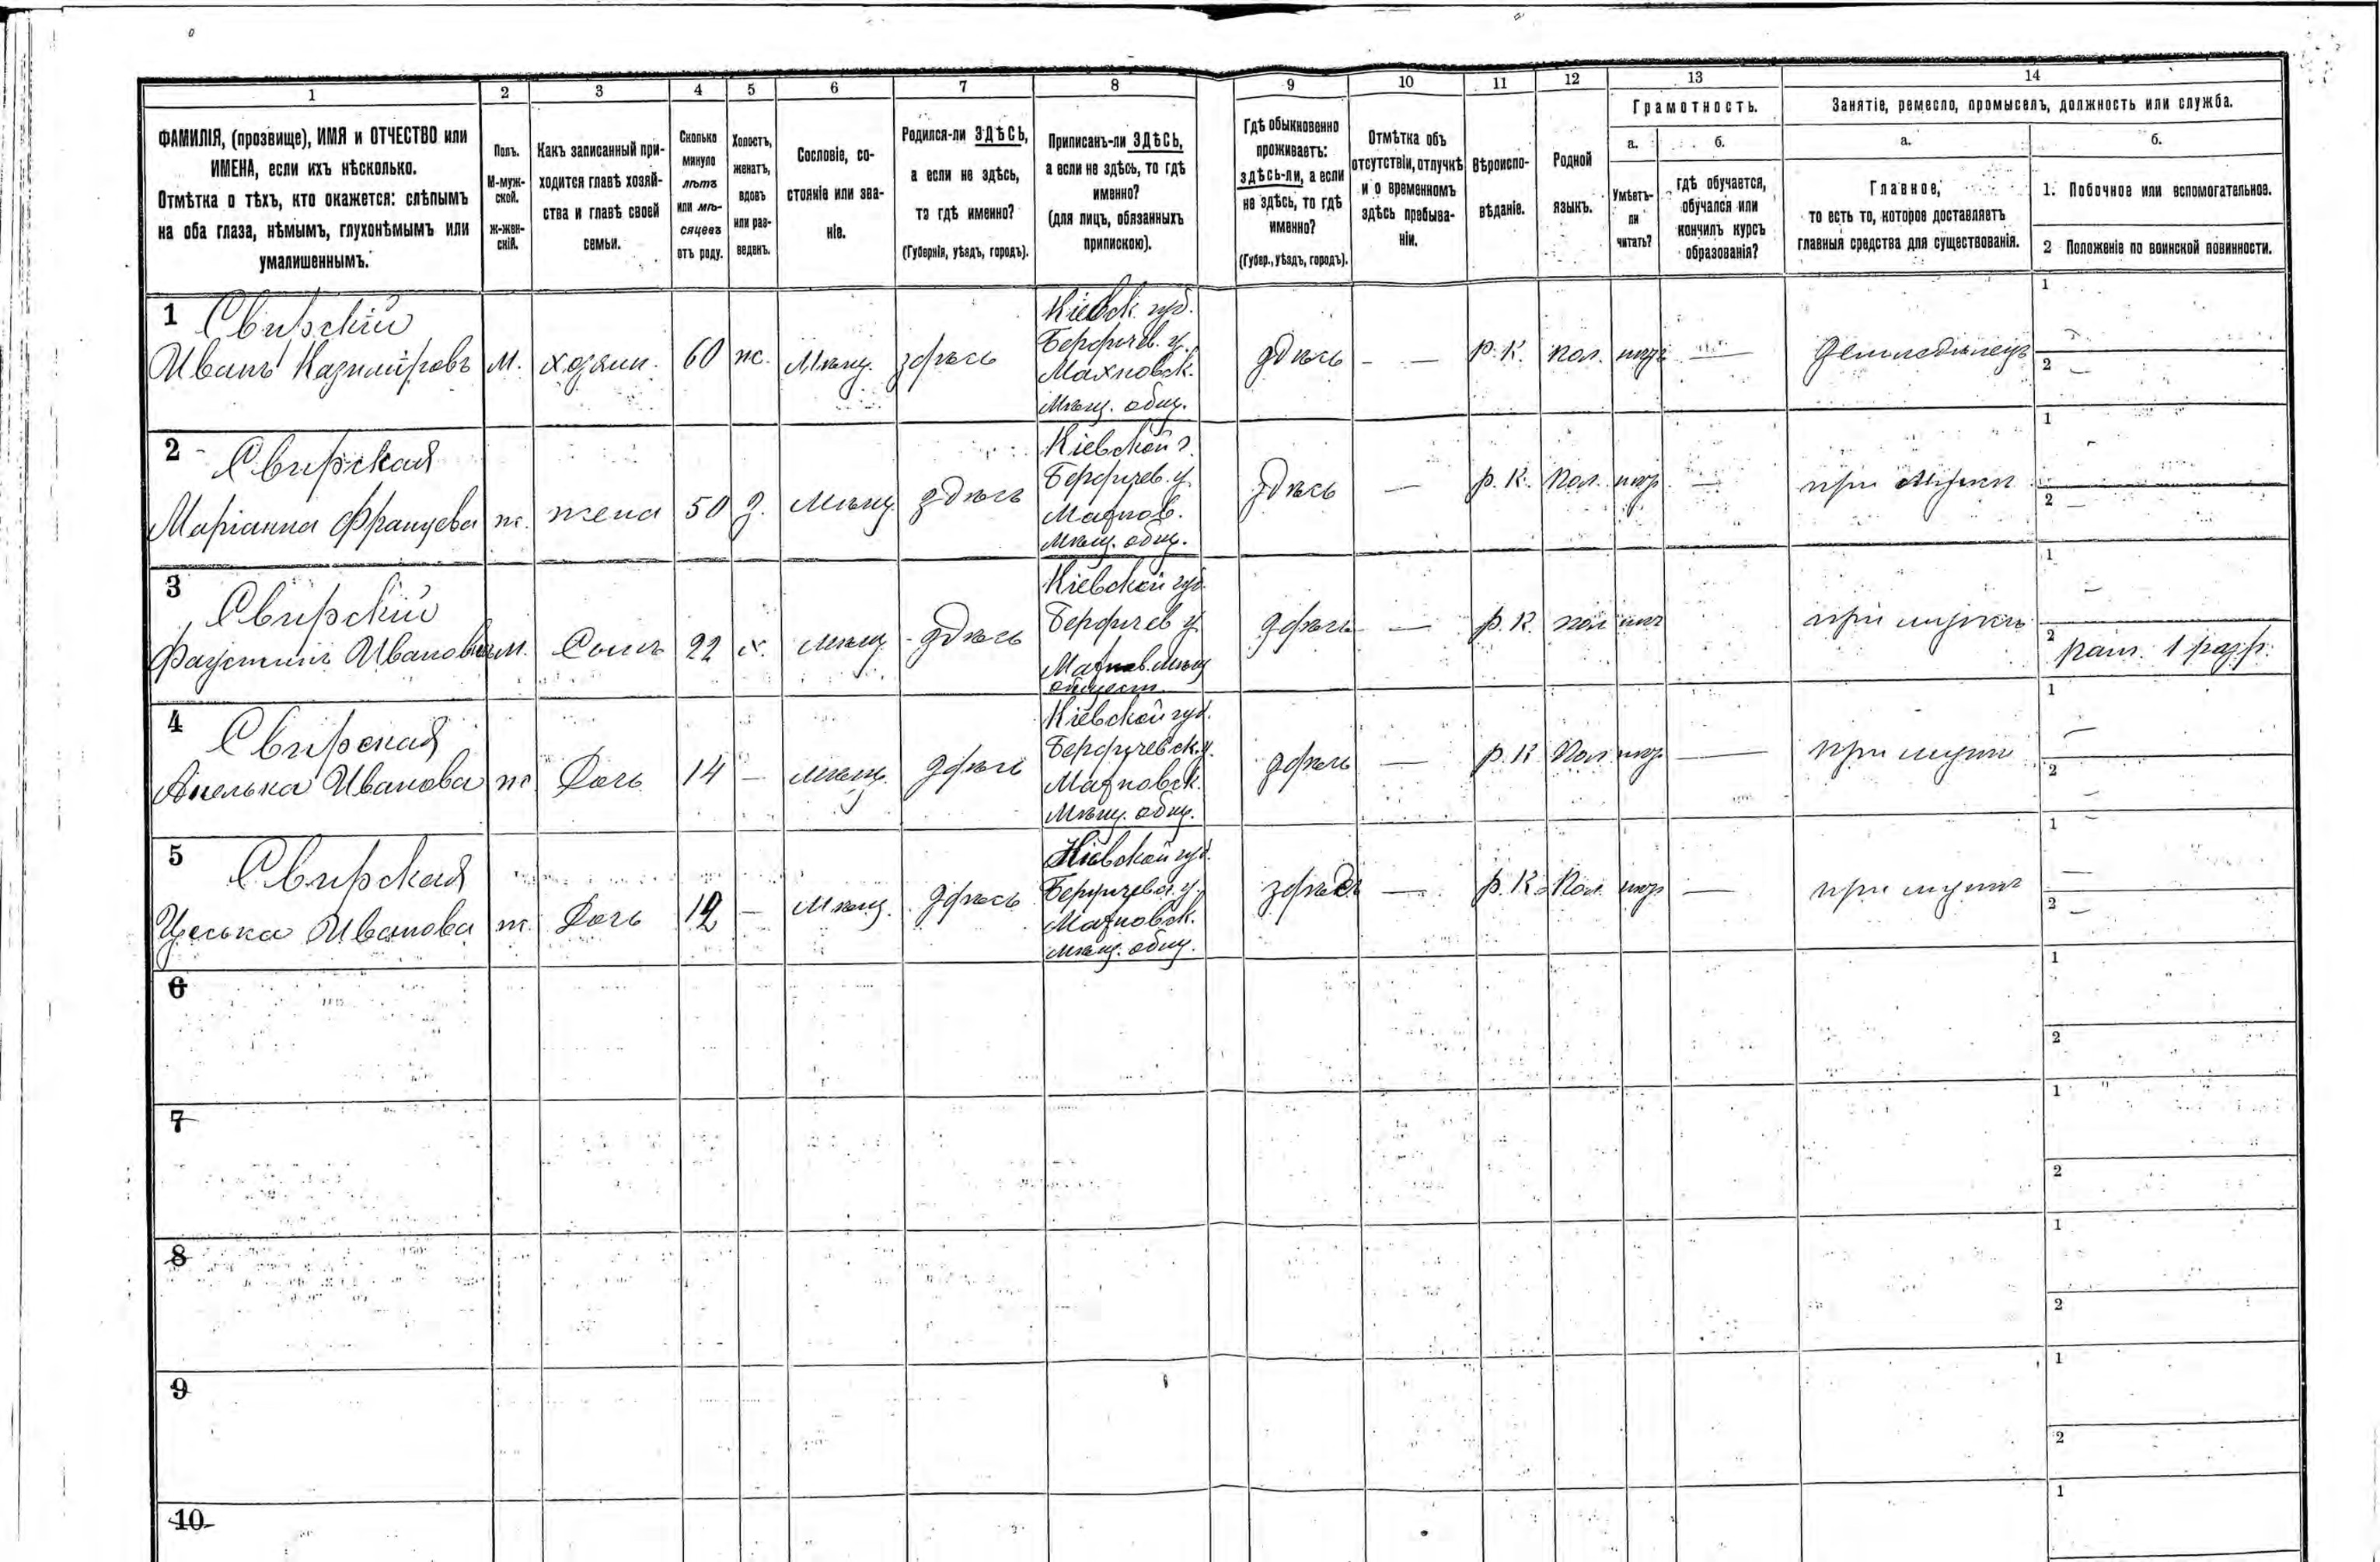 1 2 3 4 5 6 7 8 9 10 11 12 13 14
ФАМИЛІЯ, (прозвище), ИМЯ и ОТЧЕСТВО или
ИМЕНА, если ихъ нѣсколько.
Отмѣтка о тѣхъ, кто окажется: слѣпымъ
на оба глаза, нѣмымъ, глухонѣмымъ или
умалишеннымъ.
Полъ.
М-муж-
ской.
ж-жен-
скій.
Какъ записанный при-
ходится главѣ хозяй-
ства и главѣ своей
семьи.
Сколько
минуло
лѣтъ
или мѣ-
сяцевъ
отъ роду.
Холостъ,
женатъ,
вдовъ
или раз-
веденъ.
Сословіе, со-
стояніе или зва-
ніе.
Родился-ли ЗДѢСЬ,
а если не здѣсь,
то гдѣ именно?
(Губернія, уѣздъ, городъ).
Приписанъ-ли ЗДѢСЬ,
а если не здѣсь, то гдѣ
именно?
(для лицъ, обязанныхъ
припискою).
Гдѣ обыкновенно
проживаетъ:
здѣсь-ли, а если
не здѣсь, то гдѣ
именно?
(Губер., уѣздъ, городъ).
Отмѣтка объ
отсутствіи, отлучкѣ
и о временномъ
здѣсь пребыва-
ніи.
Вѣроиспо-
вѣданіе.
Родной
языкъ.
Грамотность.
а.
Умѣетъ-
ли
читать?
б.
гдѣ обучается,
обучался или
кончилъ курсъ
образованія?
Занятіе, ремесло, промыселъ, должность или служба.
а.
Главное,
то есть то, которое доставляетъ
главныя средства для существованія.
б.
1. Побочное или вспомогательное.
2 Положеніе по воинской повинности.
1 Свирскій
Иванъ Казиміровъ
М.
хозяин.
60
ж.
Мѣщ.
здѣсь
Кіевск. губ.
Бердичев. у.
Махновск.
Мѣщ. общ.
здѣсь
— —
р. К.
пол.
—
Земледѣлецъ
1
2 —
2 Свирская
Маріанна Францева
ж.
жена
50
з.
Мѣщ.
здѣсь
Кіевской г.
Бердичев. у.
Махнов.
Мѣщ. общ.
здѣсь
—
р. К.
Пол.
—
при мужѣ
1
2 —
3
Свирскій
Фаустинъ Ивановъ
М.
Сынъ
22
х.
мѣщ.
здѣсь
Кіевской губ.
Бердичев у.
Махнов. мѣщ
общест.
здѣсь
—
р. К.
пол
1 —
2 рат. 1 разр.
4
Свирская
Анелька Иванова
ж
Дочь
14
—
мѣщ.
здѣсь
Кіевской губ.
Бердичевск. у.
Махновск.
Мѣщ. общ.
здѣсь
—
р. К
Пол
—
1 —
2 —
5
Свирская
Цеська Иванова
ж.
Дочь
12
—
Мѣщ.
здѣсь
Кіевской губ.
Бердичев. у.
Махновск.
мѣщ. общ.
здѣсь
—
р. К.
Пол.
—
1 —
2 —
6
1
2
7
1
2
8
1
2
9
1
2
10
1